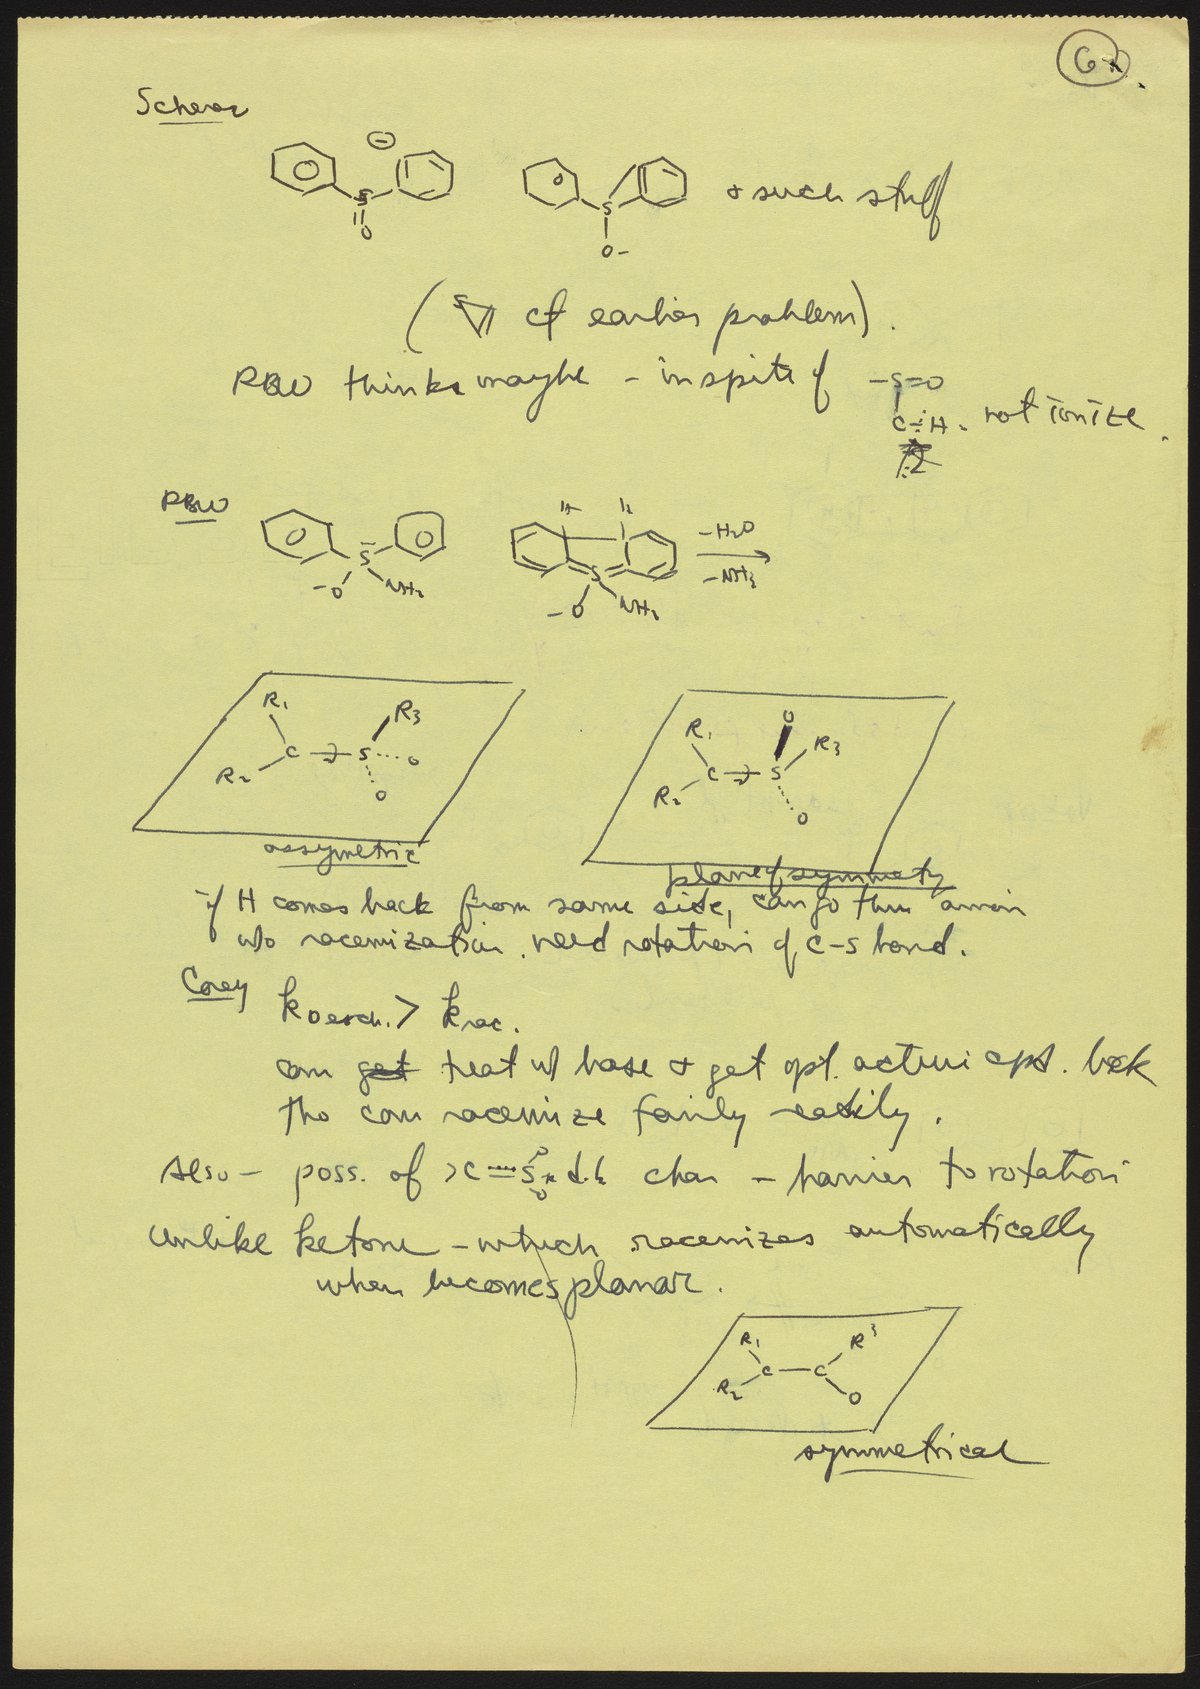 6
Scherer
⊖
S
O
S
O-
& such stuff
( S cf earlier problem).
RBW thinks maybe - in spite of -S=O
C-H. not ionize.
RBW
S
-O NH2
H H
S
-O NH2
-H2O
-NH3
R1 R3
C S O
R2 O
assymetric
O
R1 R3
C S
R2 O
plane of symmety
if H comes back from same side, can go thru anion
w/o racemization. need rotation of C-S bond.
Corey
k D exch. > k rac.
can get treat w/ base & get opt. active cpd. back
tho can racemize fairly easily.
Also - poss. of >C=S d.b. char - barrier to rotation
O
O
Unlike ketone - which racemizes automatically
when becomes planar.
R1 R3
C - C
R2 O
symmetrical